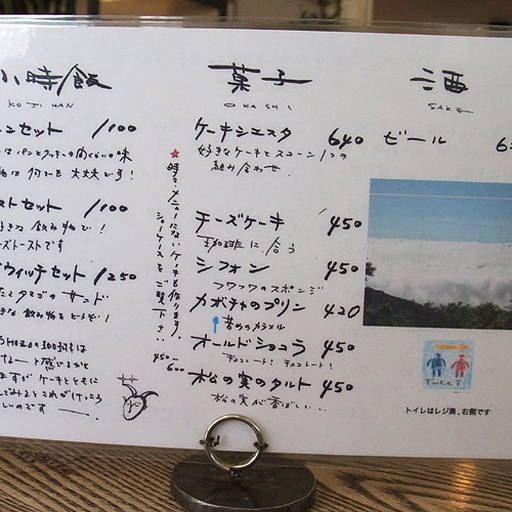 小時飯
KOJI HAN
ンセット 1100
はパンとクッキーの間くらいの味
物は何でも大丈夫です!
ストセット 1100
好きな飲み物で!
ーズトーストです
ドウィッチセット 1250
たとタマゴのサンド
きな飲み物をどうぞ!
菓子
OKASHI
ケーキシエスタ 640
好きなケーキとスコーン1つの
組み合わせ.
チーズケーキ 450
珈琲に合う
シフォン 450
フワフワのスポンジ
カボチャのプリン 420
苦めのカラメル
オールドショコラ 450
チョコレート! チョコレート!
松の実のタルト 450
松の実が香ばしい..
★時々メニューにないケーキも作ります.
ショーケースをご覧下さい:
450~
600
酒
SAKE
ビール
Toilet
トイレはレジ奥、右側です